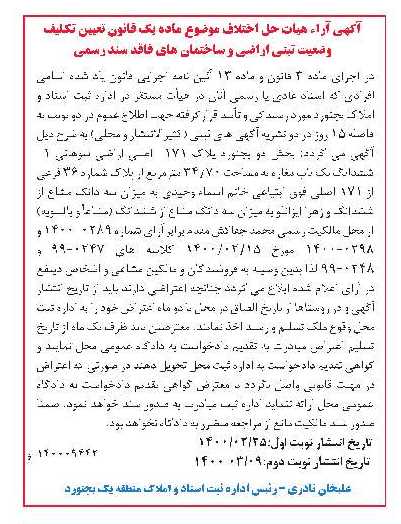 آگهی آراء هیات حل اختلاف موضوع ماده یک قانون تعیین تکلیف
وضعیت ثبتی اراضی و ساختمان های فاقد سند رسمی
در اجرای ماده ۳ قانون و ماده ۱۳ آئین نامه اجرایی قانون یاد شده اسامی
افرادی که اسناد عادی یا رسمی آنان در هیأت مستقر در اداره ثبت اسناد و
املاک بجنورد مورد رسیدگی و تأیید قرار گرفته جهت اطلاع عموم در دو نوبت به
فاصله ۱۵ روز در دو نشریه آگهی های ثبتی (کثیرالانتشار و محلی) به شرح ذیل
آگهی می گردد: بخش دو بجنورد پلاک ۱۷۱ اصلی اراضی سوهانی ۱-
ششدانگ یک باب مغازه به مساحت ۳۴/۷۰ متر مربع از پلاک شماره ۳۶ فرعی
از ۱۷۱ اصلی فوق ابتیاعی خانم اسماء وحیدی به میزان سه دانگ مشاع از
ششدانگ و زهرا ایزانلو به میزان سه دانگ مشاع از ششدانگ (مشاعاً و بالسویه)
از محل مالکیت رسمی محمد جفاکش مقدم برابر آرای شماره ۰۲۸۹-۱۴۰۰ و
۰۲۹۸-۱۴۰۰ مورخ ۱۴۰۰/۰۲/۱۵ کلاسه های ۰۲۴۷-۹۹ و
۰۲۴۸-۹۹ لذا بدین وسیله به فروشندگان و مالکین مشاعی و اشخاص ذینفع
در آرای اعلام شده ابلاغ می گردد چنانچه اعتراضی دارند باید از تاریخ انتشار
آگهی و در روستاها از تاریخ الصاق در محل تا دو ماه اعتراض خود را به اداره ثبت
محل وقوع ملک تسلیم و رسید اخذ نمایند. معترضین باید ظرف یک ماه از تاریخ
تسلیم اعتراض مبادرت به تقدیم دادخواست به دادگاه عمومی محل نمایند و
گواهی تقدیم دادخواست به اداره ثبت محل تحویل دهند در صورتی که اعتراض
در مهلت قانونی واصل نگردد یا معترض گواهی تقدیم دادخواست به دادگاه
عمومی محل ارائه ننماید اداره ثبت مبادرت به صدور سند خواهد نمود. ضمنا
صدور سند مالکیت مانع از مراجعه متضرر به دادگاه نخواهد بود.
تاریخ انتشار نوبت اول: ۱۴۰۰/۰۲/۲۵
تاریخ انتشار نوبت دوم: ۱۴۰۰/۰۳/۰۹
۱۴۰۰۰۹۶۴۲ و
علیخان نادری - رئیس اداره ثبت اسناد و املاک منطقه یک بجنورد